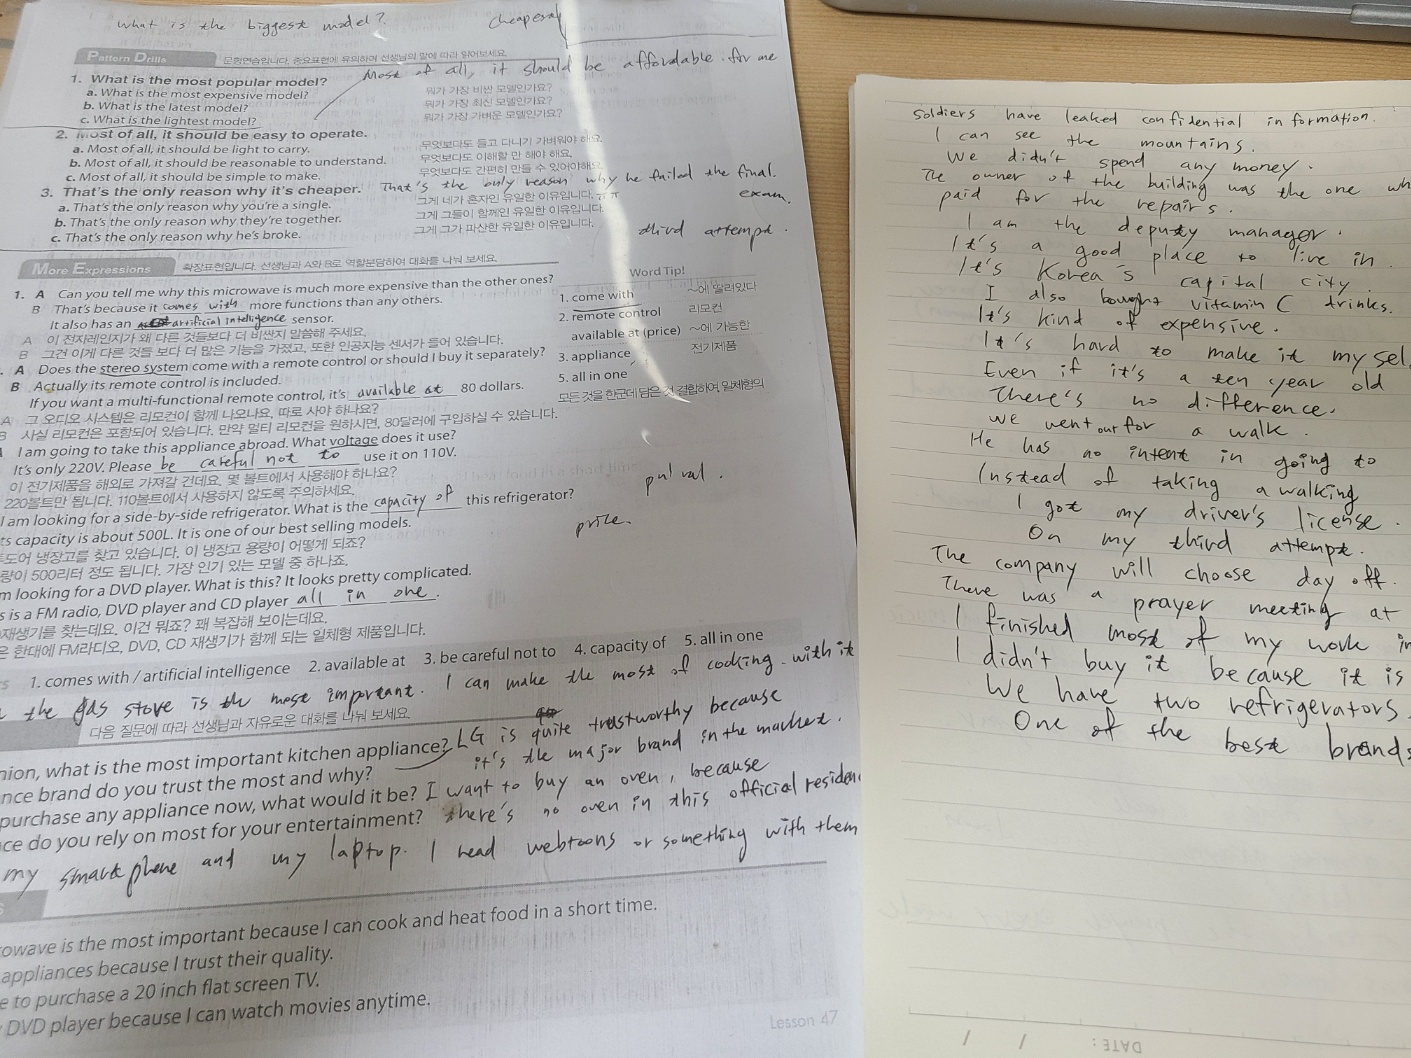 what is the biggest model?
Pattern Drills
문형연습입니다. 중요표현에 유의하여 선생님의 말에 따라 읽어보세요.
Most of all, it should be affordable for me
1. What is the most popular model?
a. What is the most expensive model? 뭐가 가장 비싼 모델인가요?
b. What is the latest model? 뭐가 가장 최신 모델인가요?
c. What is the lightest model? 뭐가 가장 가벼운 모델인가요?
2. Most of all, it should be easy to operate.
a. Most of all, it should be light to carry. 무엇보다도 들고 다니기 가벼워야 해요.
b. Most of all, it should be reasonable to understand. 무엇보다도 이해할 만 해야 해요.
c. Most of all, it should be simple to make. 무엇보다도 간편히 만들 수 있어야해요.
3. That's the only reason why it's cheaper. That's the only reason why he failed the final exam.
a. That's the only reason why you're a single. 그게 네가 혼자인 유일한 이유입니다. ㅠㅠ
b. That's the only reason why they're together. 그게 그들이 함께인 유일한 이유입니다.
c. That's the only reason why he's broke. 그게 그가 파산한 유일한 이유입니다.
third attempt.
More Expressions
확장표현입니다. 선생님과 A와 B로 역할분담하여 대화를 나눠 보세요.
1. A Can you tell me why this microwave is much more expensive than the other ones?
B That's because it comes with more functions than any others.
It also has an artificial intelligence sensor.
A 이 전자레인지가 왜 다른 것들보다 더 비싼지 말씀해 주세요.
B 그건 이게 다른 것들 보다 더 많은 기능을 가졌고, 또한 인공지능 센서가 들어 있습니다.
A Does the stereo system come with a remote control or should I buy it separately?
B Actually its remote control is included.
If you want a multi-functional remote control, it's available at 80 dollars.
A 그 오디오 시스템은 리모컨이 함께 나오나요, 따로 사야 하나요?
B 사실 리모컨은 포함되어 있습니다. 만약 멀티 리모컨을 원하시면, 80달러에 구입하실 수 있습니다.
I am going to take this appliance abroad. What voltage does it use?
It's only 220V. Please be careful not to use it on 110V.
이 전자제품을 해외로 가져갈 건데요. 몇 볼트에서 사용해야 하나요?
220볼트만 됩니다. 110볼트에서 사용하지 않도록 주의하세요.
I am looking for a side-by-side refrigerator. What is the capacity of this refrigerator?
ts capacity is about 500L. It is one of our best selling models.
도어 냉장고를 찾고 있습니다. 이 냉장고 용량이 어떻게 되죠?
량이 500리터 정도 됩니다. 가장 인기 있는 모델 중 하나죠.
m looking for a DVD player. What is this? It looks pretty complicated.
s is a FM radio, DVD player and CD player all in one.
재생기를 찾는데요. 이건 뭐죠? 꽤 복잡해 보이는데요.
은 한대에 FM라디오, DVD, CD 재생기가 함께 되는 일체형 제품입니다.
Word Tip!
1. come with ~에 딸려있다
2. remote control 리모컨
available at (price) ~에 가능한
3. appliance 전기제품
5. all in one
모든 것을 한군데 담은 것, 결합하여, 일체형의
price.
1. comes with / artificial intelligence 2. available at 3. be careful not to 4. capacity of 5. all in one
the gas stove is the most important. I can make the most of cooking with it
다음 질문에 따라 선생님과 자유로운 대화를 나눠 보세요.
nion, what is the most important kitchen appliance? LG is quite trustworthy because
nce brand do you trust the most and why? it's the major brand in the market.
purchase any appliance now, what would it be? I want to buy an oven, because
ce do you rely on most for your entertainment? there's no oven in this official residen
my smart phone and my laptop. I read webtoons or something with them
owave is the most important because I can cook and heat food in a short time.
appliances because I trust their quality.
e to purchase a 20 inch flat screen TV.
DVD player because I can watch movies anytime.
Lesson 47
soldiers have leaked confidential information.
I can see the mountains.
We didn't spend any money.
The owner of the building was the one wh
paid for the repairs.
I am the deputy manager.
It's a good place to live in.
It's Korea's capital city.
I also bought vitamin C drinks.
It's kind of expensive.
It's hard to make it my sel
Even if it's a ten year old
There's no difference.
we went out for a walk.
He has no intent in going to
Instead of taking a walking
I got my driver's license.
On my third attempt.
The company will choose day off.
There was a prayer meeting at
I finished most of my work in
I didn't buy it because it is
We have two refrigerators.
One of the best brands
DATE : / /